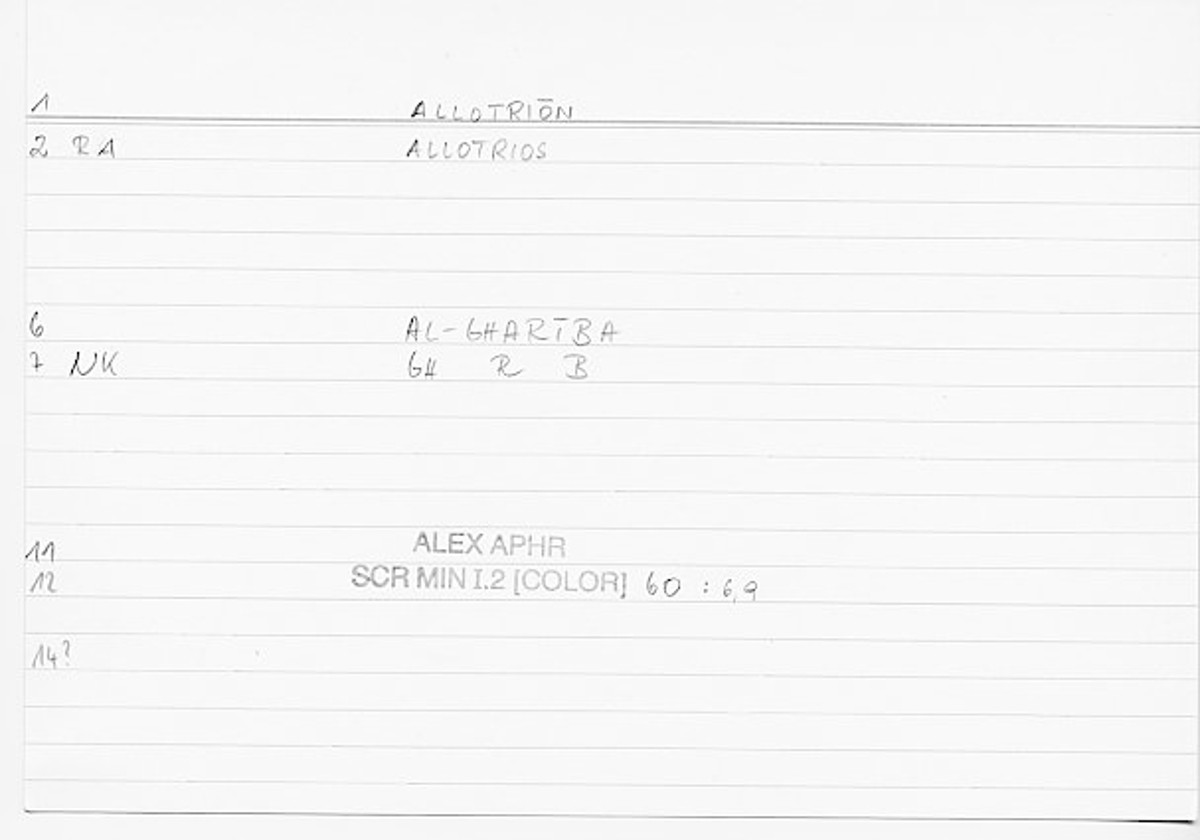 1 ALLOTRIŌN
2 RA ALLOTRIOS
6 AL-GHARĪBA
7 NK GH R B
11 ALEX APHR
12 SCR MIN I.2 [COLOR] 60 : 6,9
14?